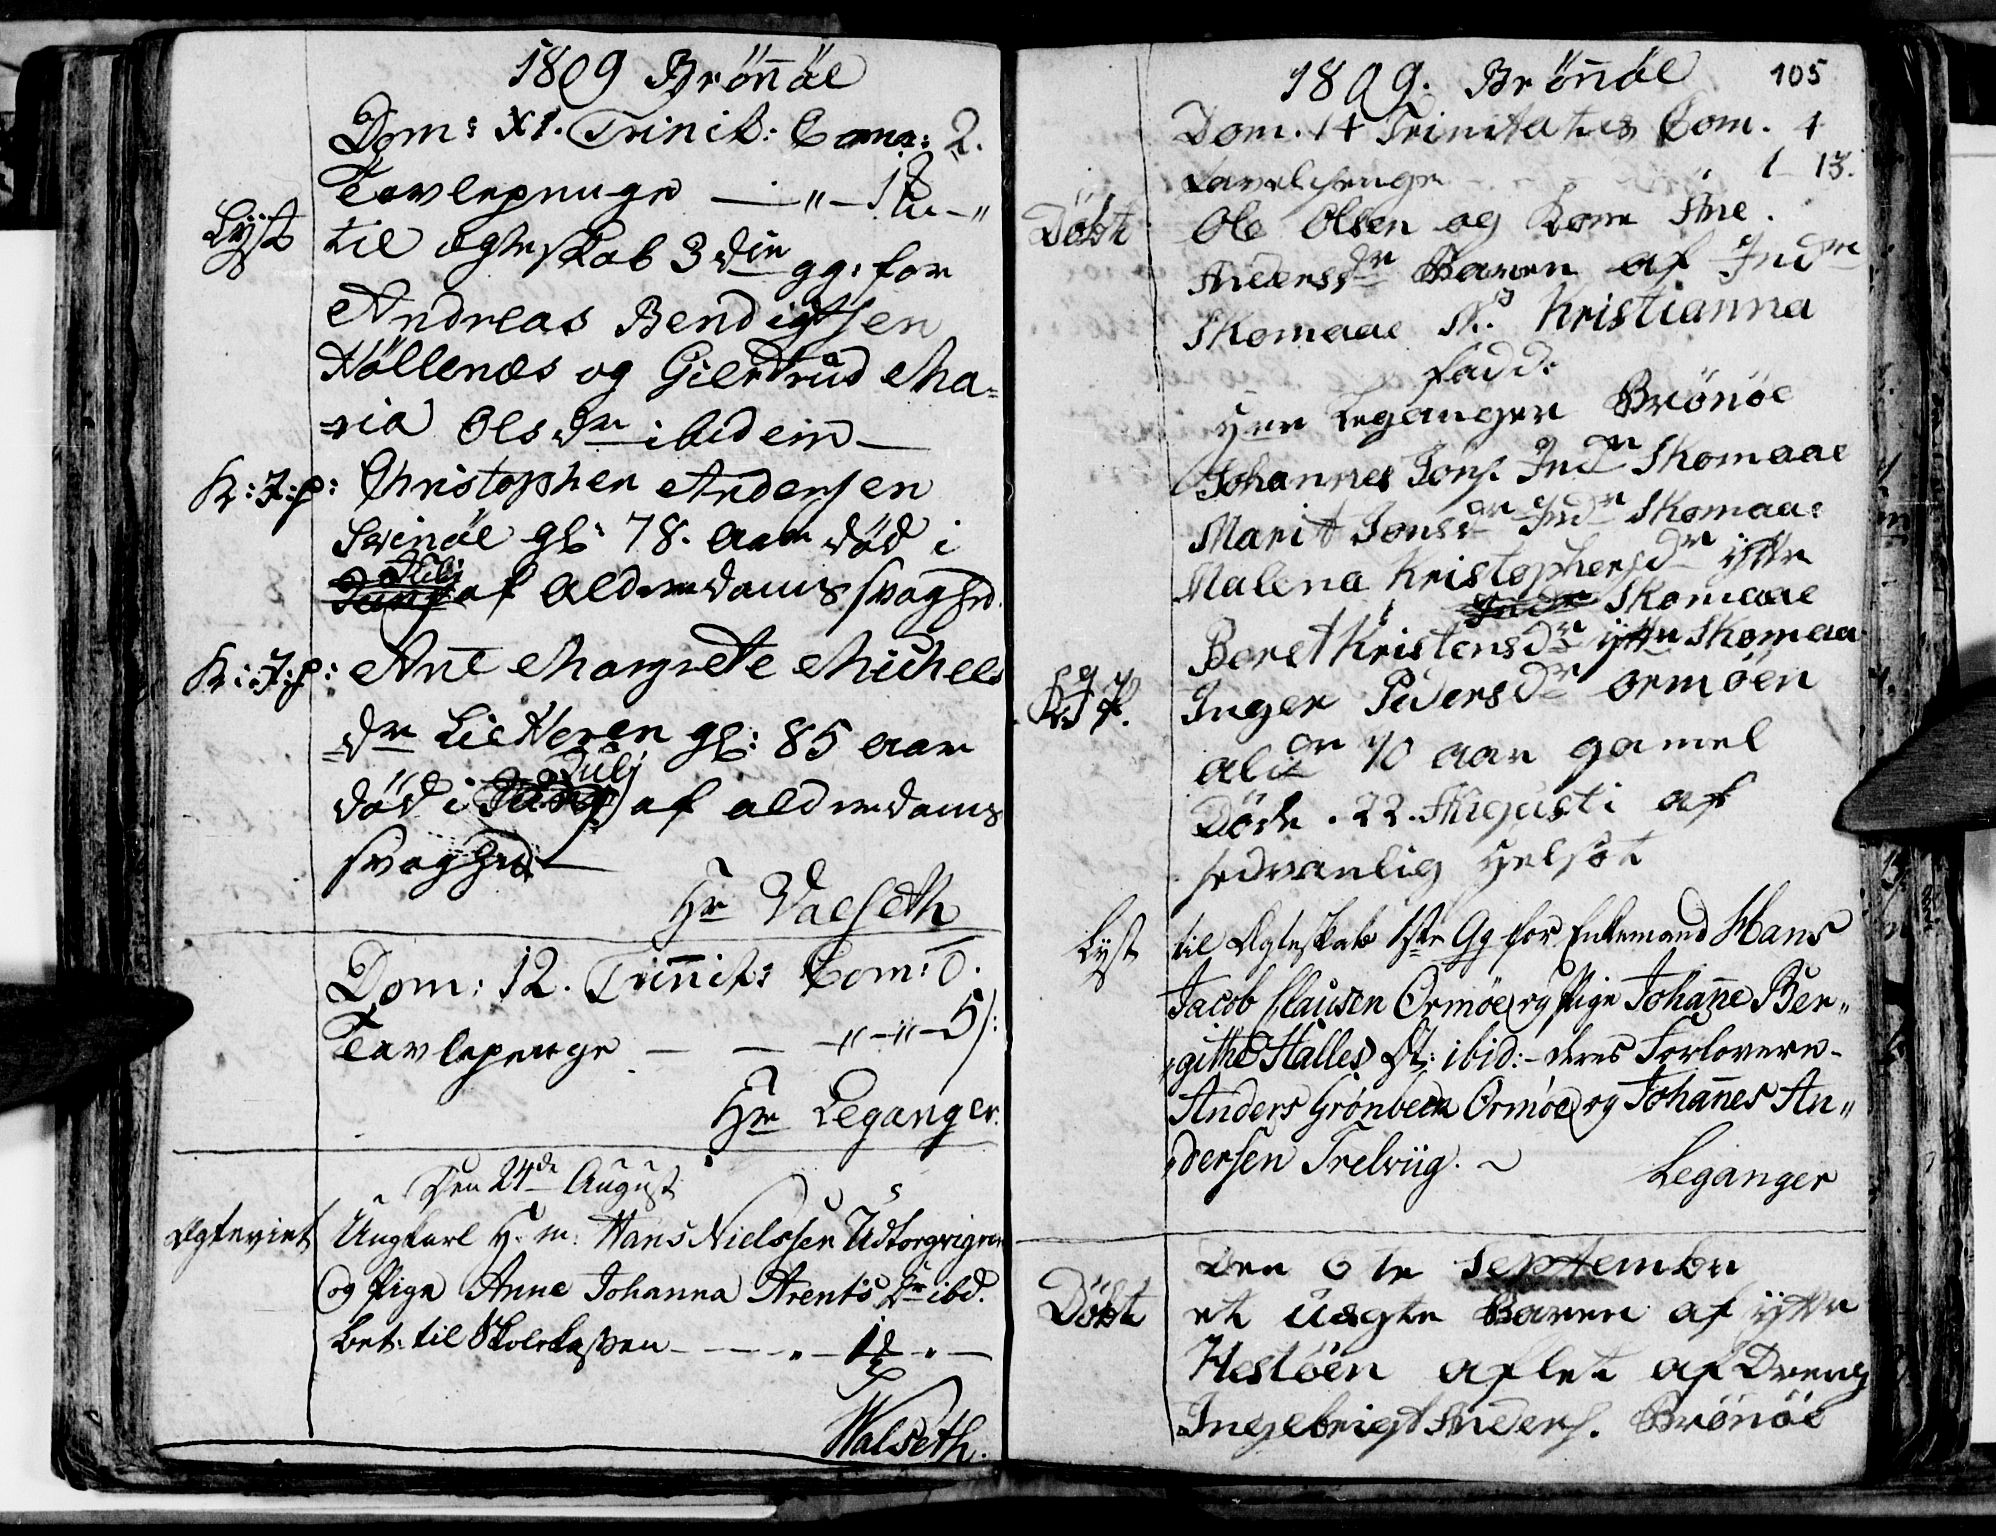 1809 Brönnöe
Dom: XI. Trinit: Comm: 2.
Tavlepenge — " — 18 — "
Lyst til ægteskab 3die gg: for
Andreas Bendigtsen
Höllenæs og Giertrud Ma=
=ria Olsdr ibidem —
K:J:p: Christopher Andersen
Svinöe gl: 78. aar död i
Julij af alderdoms svaghed.
K:J:p: Ane Margrete Michels
dr Lie gl: 85 aar
död i Julij af alderdoms
svaghed —
Hr Valseth
Dom: 12. Trinit: Com: 0.
Tavlepenge — — " — " — 5 /:
Hr Leganger.
Den 24de August
Ægteviet Ungkarl H. m: Hans Nielssen Udtorgvigen
og Pige Anne Johanna Arents Dr ibd.
bet: til Skolekassen — — — " — — " —
Walseth.
1809. Brönnöe 105
Dom. 14 Trinitates Com. 4
Tavelpenge 1 13.
Döbt Ole Olsen og Kone Ane
Andersdr Baren af Indre
Skomaae N: Kristianna
fadd:
Herr Leganger Brönöe
Johannes Jons. Indr Skomaae
Marit Jonsdr Indr Skomaae
Malena Kristophersdr ÿttre
Skomaae
Beret Kristensdr ÿttre Skomaa
K J P. Inger Pedersdr Ormöen
70 aar gamel
Döde . 22. Augusti af
sedvanlig Helsot
Lyst til Ægteskab 1ste Gg for Enkemand Hans
Jacob Clausen Ormöe og Pige Johanne Ber"
"githe Halles Dt: ibid: - deres Forlovere -
Anders Grönbeck Ormöe og Johannes An"
"dersen Trelviig. ~
Leganger
Den 6te September
Döbt et Uægte Baren af ÿttre
Hestöen aflet af Dreng
Ingebrigt Anders. Brönöe